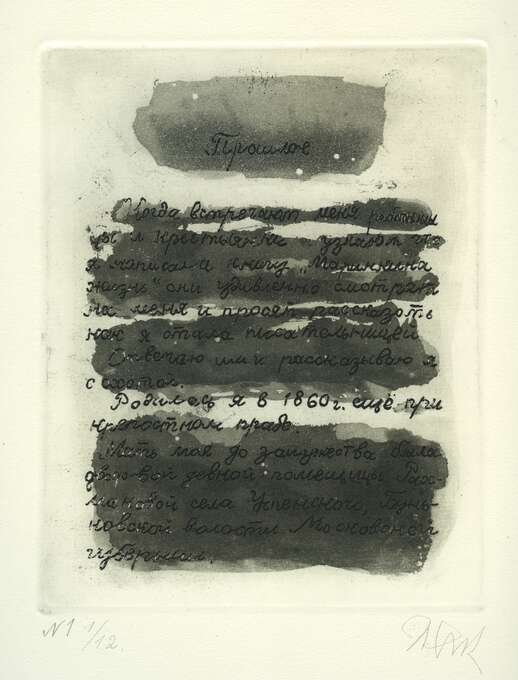 Прошлое
Когда встречают меня работни
цы и крестьянки узнают что
я написала книгу „Маринкина
жизнь" они удивленно смотрят
на меня и просят рассказать
как я стала писательницей
Отвечаю им и рассказываю я
с охотой.
Родилась я в 1860 г. ещё при
крепостном праве.
Мать моя до замужества была
дворовой девкой помещицы Рах-
мановой села Успенского,
новской волости Московской
губернии.
N1 1/12.